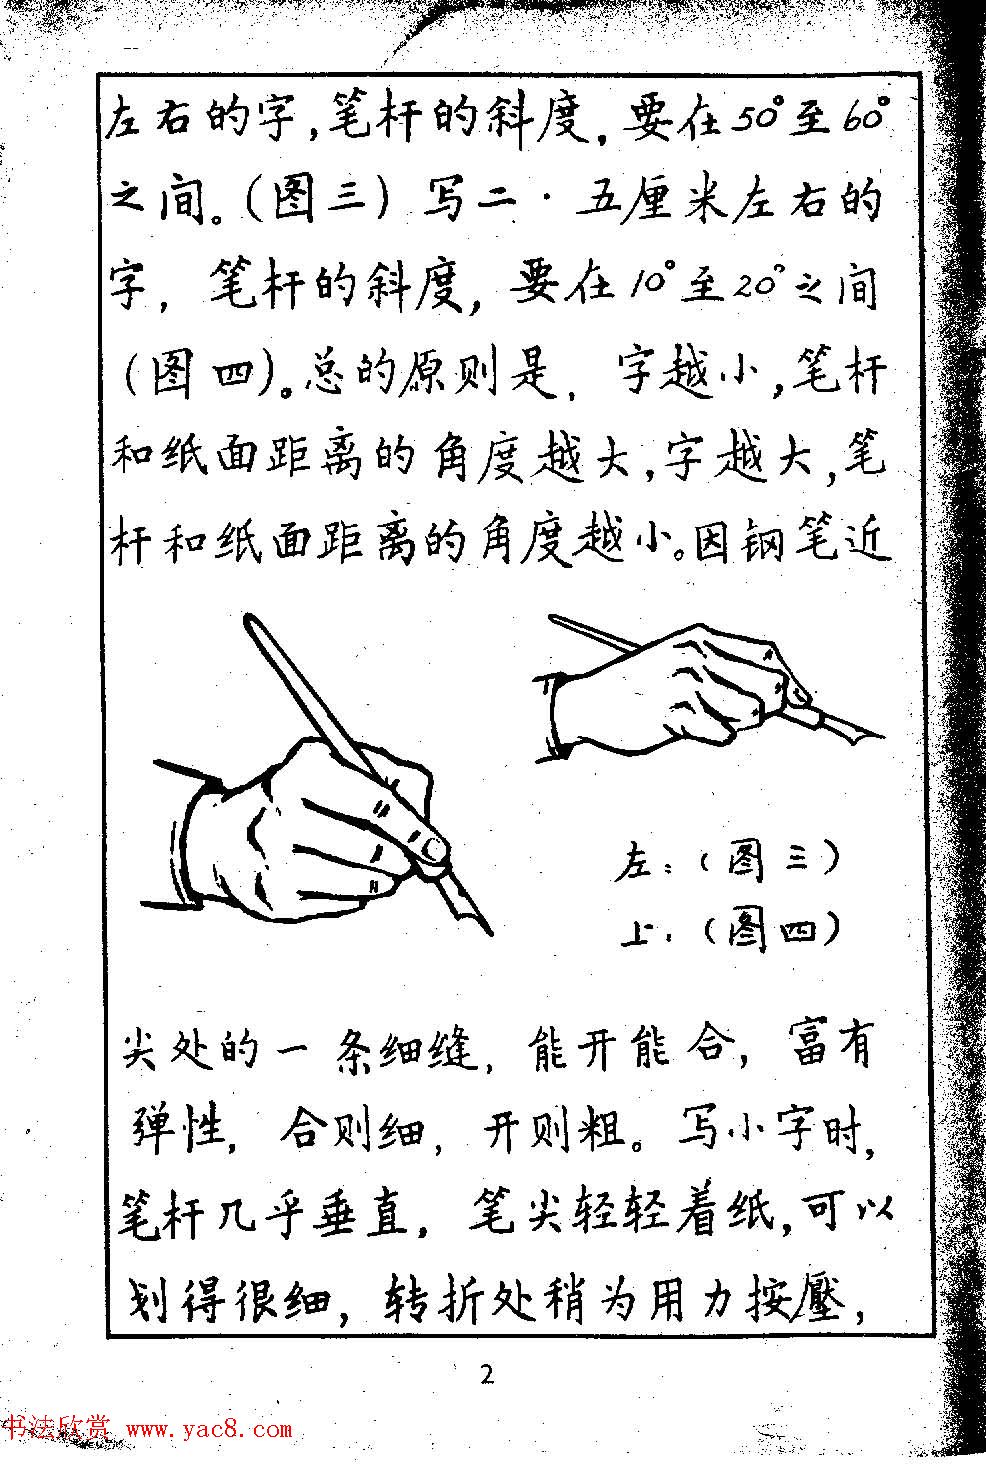 左右的字，笔杆的斜度，要在50°至60°
之间。（图三）写二·五厘米左右的
字，笔杆的斜度，要在10°至20°之间
（图四）。总的原则是，字越小，笔杆
和纸面距离的角度越大，字越大，笔
杆和纸面距离的角度越小。因钢笔近
左：（图三）
上：（图四）
尖处的一条细缝，能开能合，富有
弹性，合则细，开则粗。写小字时，
笔杆几乎垂直，笔尖轻轻着纸，可以
划得很细，转折处稍为用力按壓，
2
书法欣赏 www.yac8.com